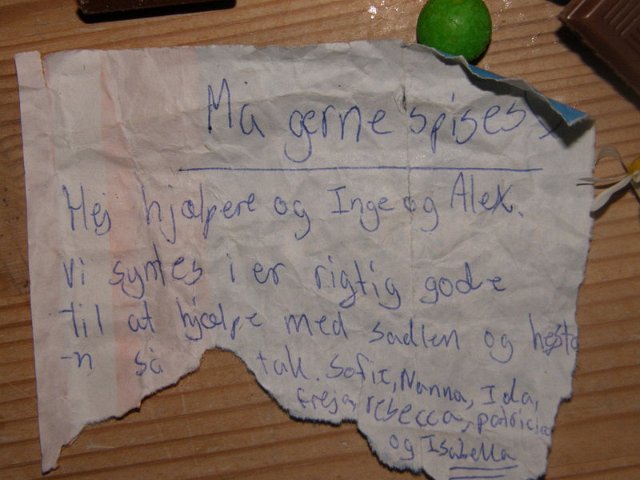 Må gerne spises
Hej hjælpere og Inge og Alex.
Vi syntes i er rigtig gode
til at hjælpe med sadlen og heste
-n så tak. Sofie, Nanna, Ida,
freja, rebecca, patricia
og Isabella